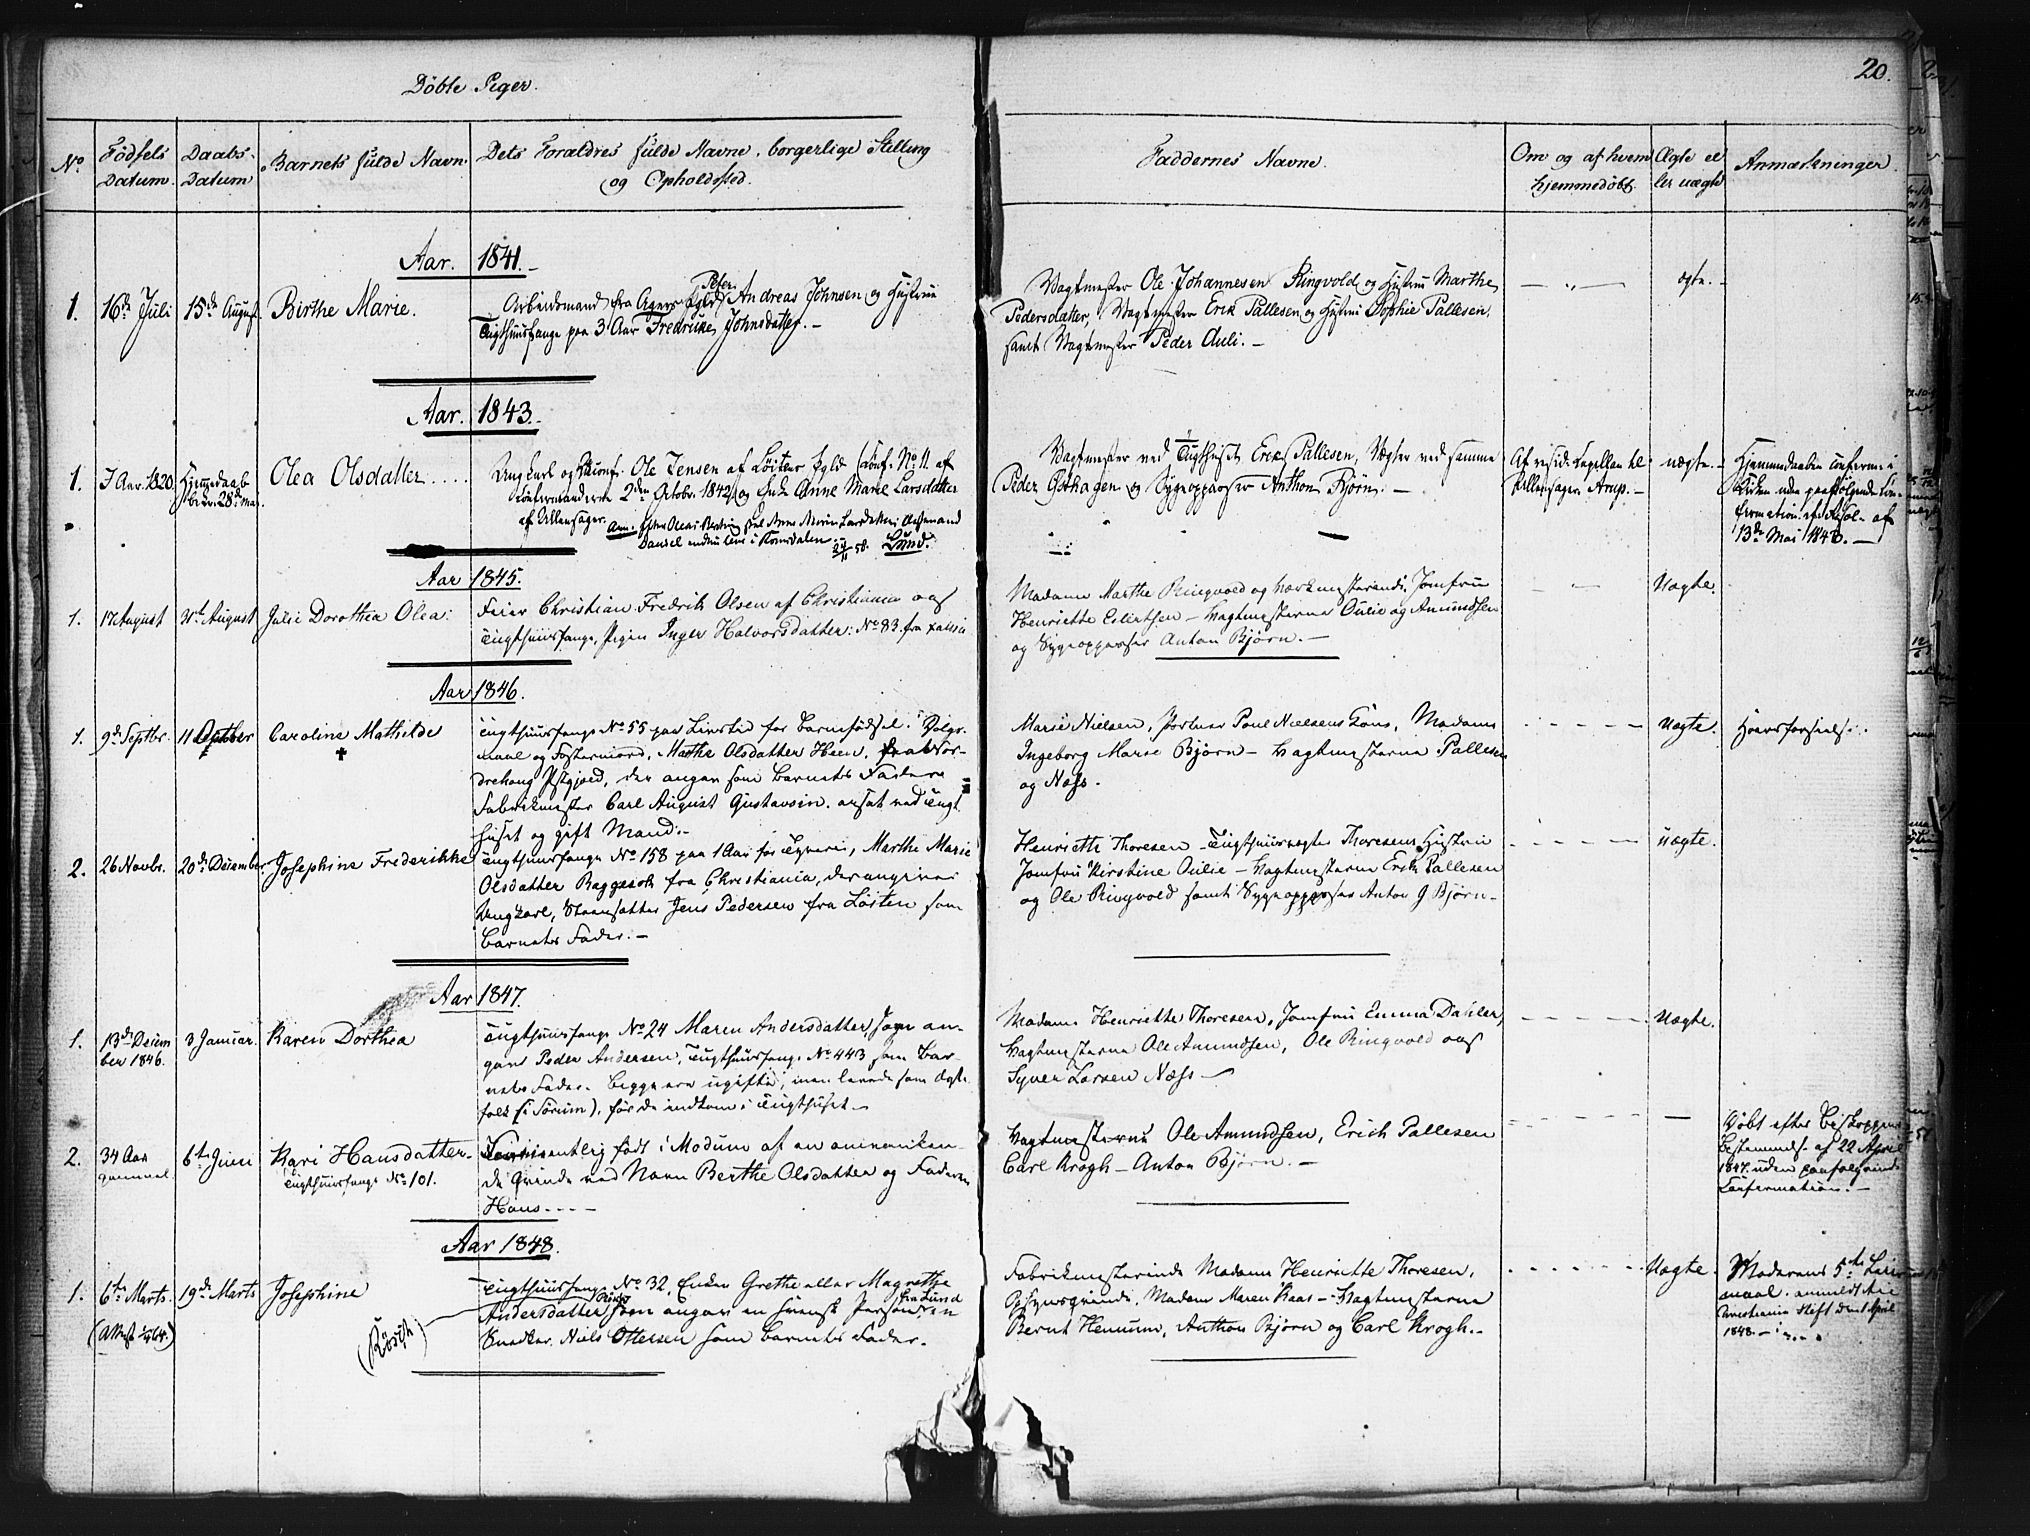 Døbte Piger.
20.
No
Fødsels Datum.
Daabs-Datum
Barnets fulde Navn.
Dets Forældres fulde Navne, borgerlige Stilling
og Opholdssted.
Faddernes Navne.
Om og af hvem
hjemmedöbt.
Ægte el
ler uægte
Anmærkninger.
Aar. 1841.
1. 16de Juli 15de August Birthe Marie.
Arbeidsmand fra Agers Prgld Peter Andreas Johnsen og Hustrue
Tugthuusfange paa 3 Aar Fredrikke Johnsdatter.
Vagtmester Ole Johannesen Ringvold og Hustru Marthe
Pedersdatter, Vagtmester Erik Pallesen og Hustru Sophie Pallesen,
samt Vagtmester Peder Auli.
ægte.
Aar. 1843.
1. J Aar. 1820. Hjemmedaab
bekr. 28de Mai Olea Olsdatter
Ungkarl og Ole Jensen af Löiten Prgld (Conf. No 11 af
Confirmanderne 2den Octobr. 1842) og Enke Anne Marie Larsdatter
af Ullensager.
Daniel i Romsdalen. Lund.
Vagtmester ved Tugthuset Erik Pallesen, Vægter ved samme
Peder Gothagen og Sygeopasser Anthon Bjørn.
Af resid. Capellan til
Ullensager Arup.
uægte.
Hjemmedaaben confirm. i
Kirken uden paafølgende Con-
firmation. efter Resol. af
13de Mai 1843.
Aar 1845.
1. 17 August 31te August Julie Dorothea Olea:
Feier Christian Fredrik Olsen af Christiania og
Tugthuusfange, Pigen Inger Halvorsdatter: No 83. fra
Madame Marthe Ringvold og Jomfru
Henriette Eilertsen – Vagtmesterne Oulie og Amundsen
og Sygeopasser Anton Bjørn.
Uægte.
Aar 1846.
1. 9de Septbr. 11 Octber Caroline Mathilde
†
Tugthuusfange No 55 paa Livstid for Barnefødsel i Dølgs-
maal og Fostermord, Marthe Olsdatter Heen, fra Nor-
drehaug Pstgjæld, der angav som Barnets Fader
Fabrikmester Carl August Gustavsen. ansat ved Tugt
huset og gift Mand.
Marie Nielsen, Portner Poul Nielsens Kone, Madame
Ingeborg Marie Bjørn – Vagtmesterne Pallesen
og Næss.
Uægte.
2. 26 Novbr. 20de December Josephine Frederikke
Tugthuusfange No 158 paa 1 Aar for Tyveri, Marthe Marie
Olsdatter fra Christiania, der angiver
Ungkarl, Jens Pedersen fra Löiten som
Barnets Fader.
Henriette Thoresen – Tugthuusvægter Thoresens Hustru
Jomfru Kirstine Oulie – Vagtmesterne Erik Pallesen
og Ole Ringvold samt Sygeopasser Anton G Bjørn
Uægte.
Aar 1847.
1. 13de Decem
ber 1846. 3 Januar. Karen Dorthea
Tugthuusfange No 24 Maren Andersdatter, som an-
gav Peder Andersen, Tugthuusfange No 443 som Bar-
nets Fader. Begge ere ugifte, men levede som Ægte
folk (i Sørum), før de indkom i Tugthuset
Madame Henriette Thoresen, Jomfru Emma Dahler,
Vagtmesterne Ole Amundsen, Ole Ringvold og
Syver Larsen Næss
Uægte.
2. 34 Aar
gammel. 6te Juni Kari Hansdatter
Tugthuusfange No 101.
født i Modum af en omvanken-
de Qvinde ved Navn Berthe Olsdatter og Faderen
Hans
Vagtmesterne Ole Amundsen, Erich Pallesen
Carl Krogh – Anton Bjørn.
Døbt efter Biskoppens
Bestemmelse af 22 April
1847. uden paafølgende
Confirmation.
Aar 1848.
1. 6te Marts. 19de Marts Josephine
(Attest 1/4 64.)
Tugthuusfange No 32, Enken Grethe eller Magrethe
Andersdatter fra Lund som angav en svensk Person, en
Snedker Niels Ottersen som Barnets Fader.
Fabrikmesterinde Madame Henriette Thoresen,
Opsynsqvinde, Madam Maren Kaas – Vagtmesterne
Bernt Hemum, Anthon Bjørn og Carl Krogh.
Uægte.
Moderens 5te Leier-
maal. anmeldt til
Christiania Stift den 1 April
1848.